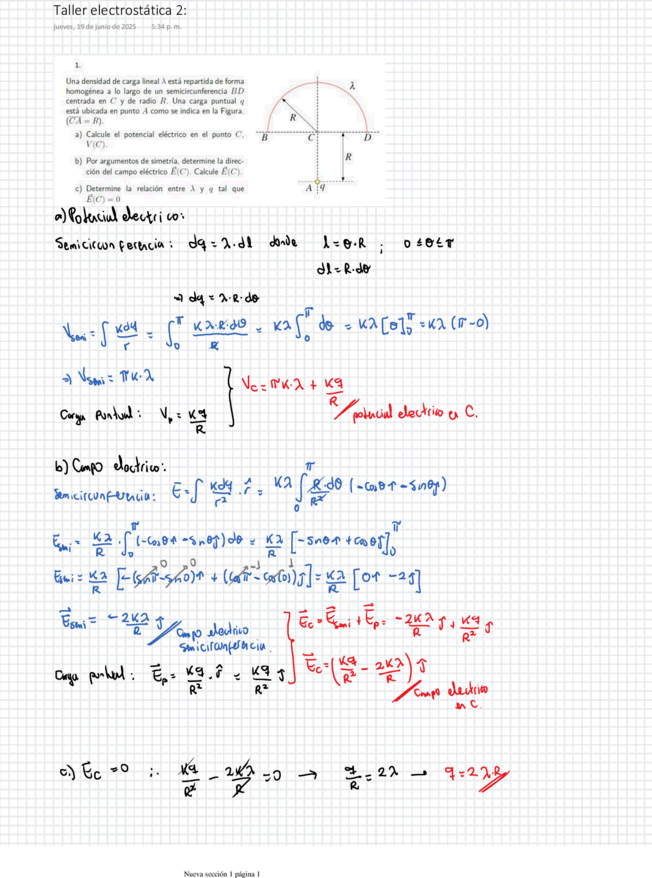 Taller electrostática 2:
jueves, 19 de junio de 2025 5:34 p. m.
1.
Una densidad de carga lineal λ está repartida de forma
homogénea a lo largo de un semicircunferencia BD
centrada en C y de radio R. Una carga puntual q
está ubicada en punto A como se indica en la Figura.
(CA = R).
a) Calcule el potencial eléctrico en el punto C,
V(C).
b) Por argumentos de simetría, determine la direc-
ción del campo eléctrico E⃗(C). Calcule E⃗(C).
c) Determine la relación entre λ y q tal que
E⃗(C) = 0
λ
R
B C D
R
A q
a) Potencial electrico:
Semicircunferencia: dq = λ·dl donde l = θ·R ; 0 ≤ θ ≤ π
dl = R·dθ
⇒ dq = λ·R·dθ
Vsemi = ∫ Kdq/r = ∫₀^π Kλ·R·dθ/R = Kλ ∫₀^π dθ = Kλ [θ]₀^π = Kλ (π-0)
⇒ Vsemi = πK·λ
Carga Puntual: Vp = Kq/R
Vc = πK·λ + Kq/R
potencial electrico en C.
b) Campo electrico:
Semicircunferencia: E = ∫ Kdq/r² · r̂ = Kλ ∫₀^π R·dθ/R² (-cosθ î - sinθ ĵ)
Esemi = Kλ/R · ∫₀^π (-cosθ î - sinθ ĵ) dθ = Kλ/R [-sinθ î + cosθ ĵ]₀^π
Esemi = Kλ/R [-(sinπ - sin0) î + (cosπ - cos(0)) ĵ] = Kλ/R [0î - 2ĵ]
E⃗semi = -2Kλ/R ĵ
Campo electrico
semicircunferencia.
Carga puntual: E⃗p = Kq/R² · r̂ = Kq/R² ĵ
E⃗c = E⃗semi + E⃗p = -2Kλ/R ĵ + Kq/R² ĵ
E⃗c = (Kq/R² - 2Kλ/R) ĵ
Campo electrico
en C.
c.) Ec = 0 ∴ Kq/R² - 2Kλ/R = 0 → q/R = 2λ → q = 2λ·R
Nueva sección 1 página 1